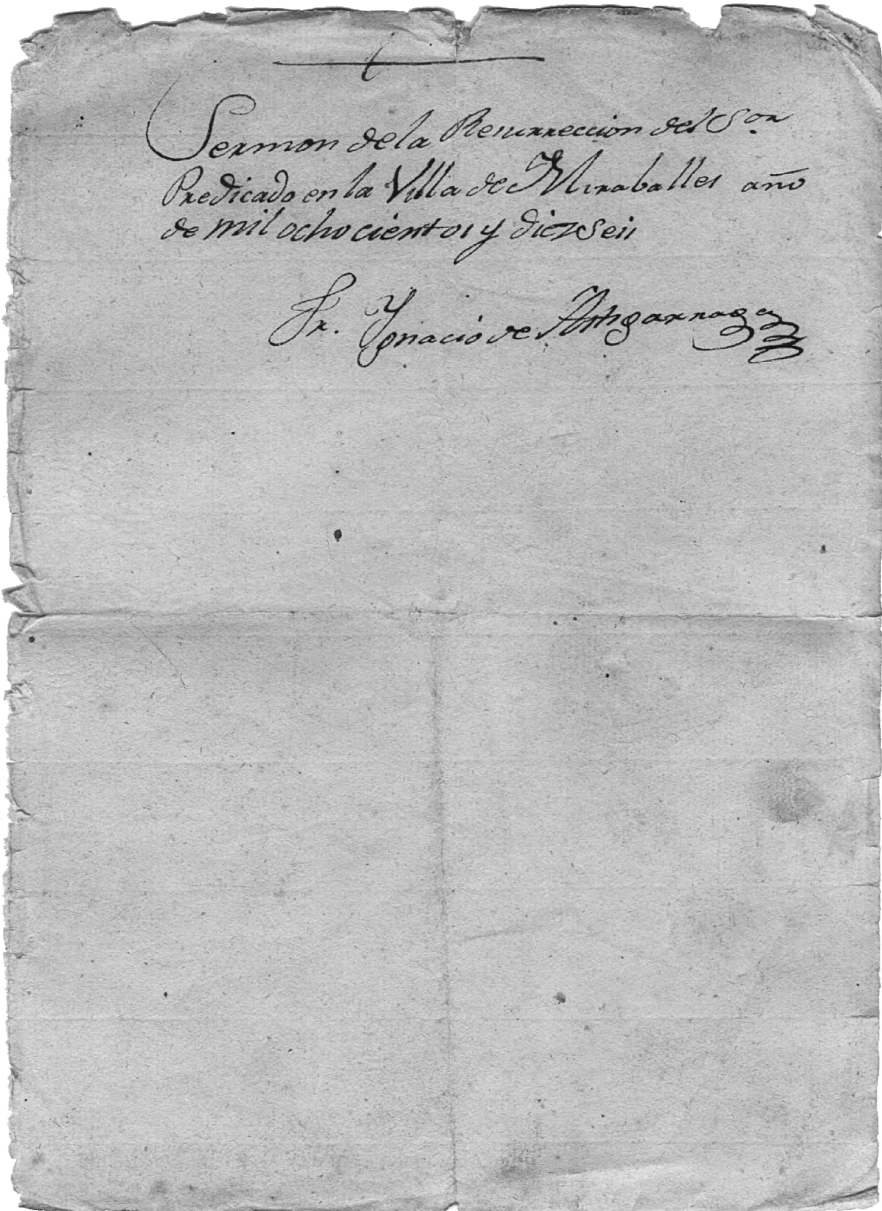 Sermon de la Resurreccion del Sor
Predicado en la Villa de Miraballes año
de mil ochocientos y diez seis
Fr. Ygnacio de